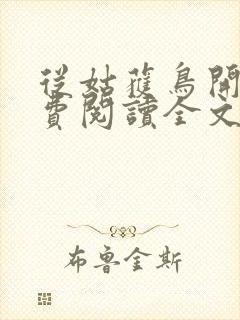 從姑蘓鳥開
費閱讀全文
布魯金斯